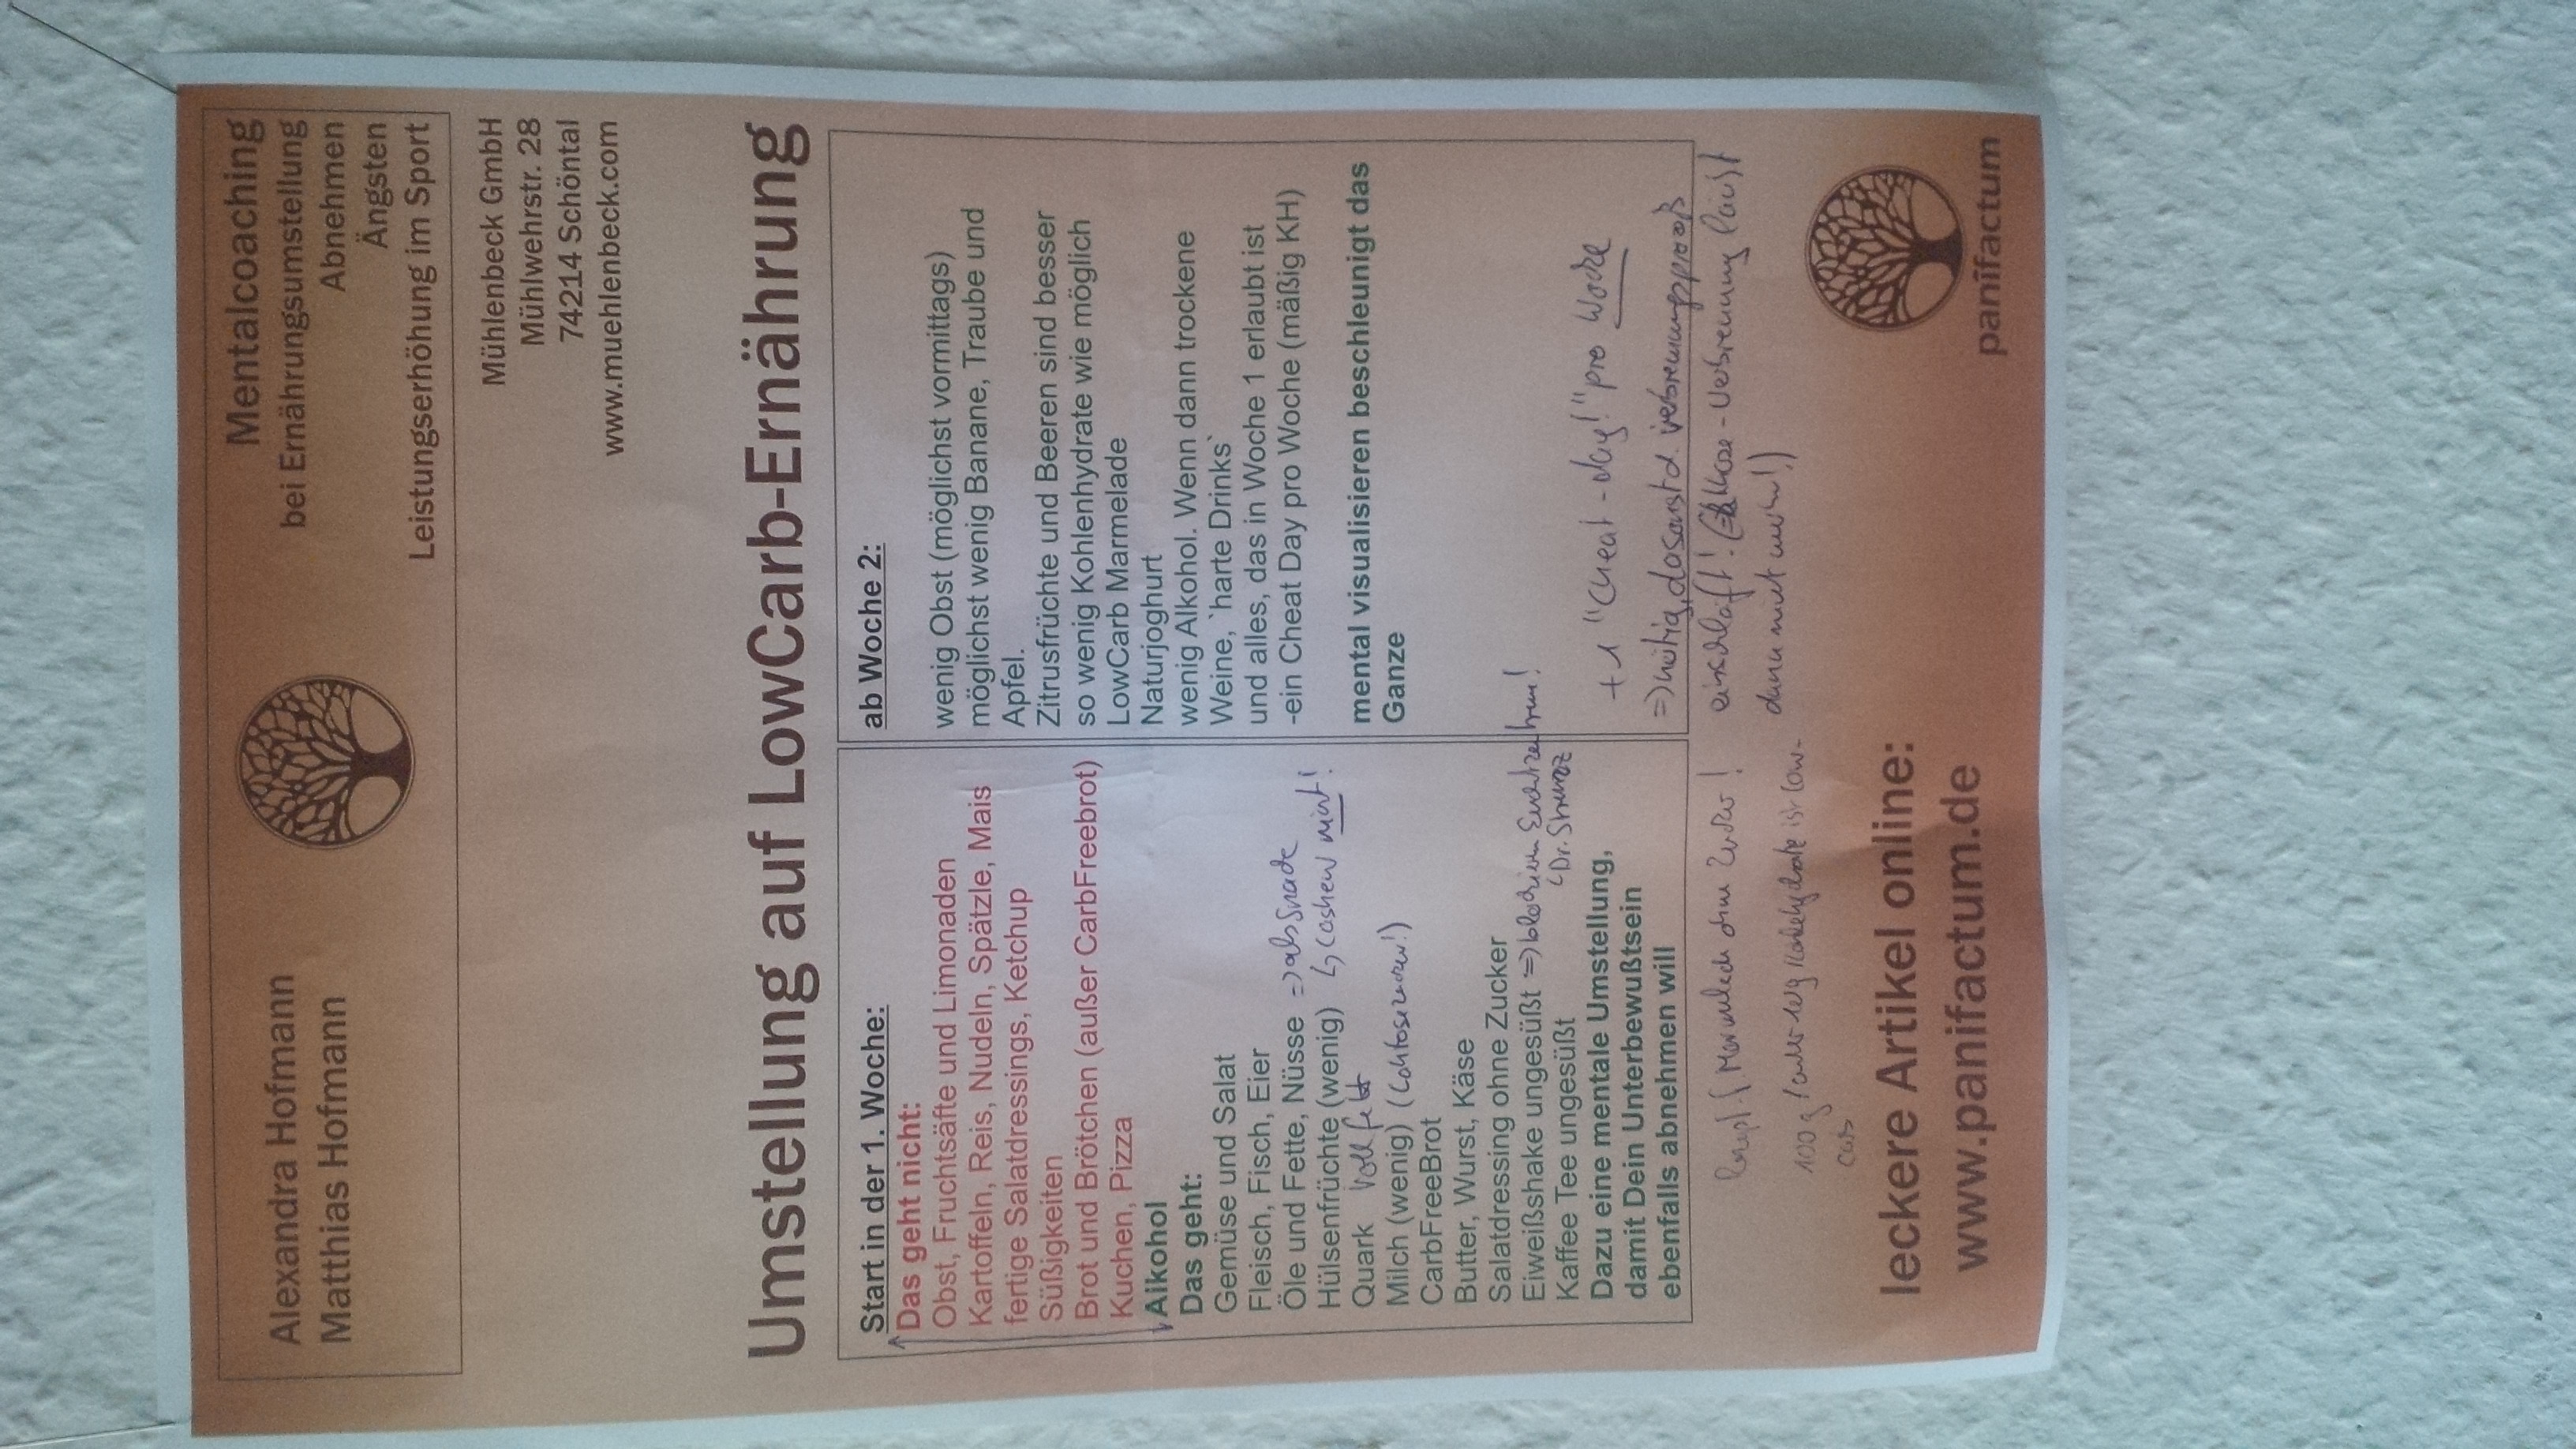 Alexandra Hofmann
Matthias Hofmann
Mentalcoaching
bei Ernährungsumstellung
Abnehmen
Ängsten
Leistungserhöhung im Sport
Mühlenbeck GmbH
Mühlwehrstr. 28
74214 Schöntal
www.muehlenbeck.com
Umstellung auf LowCarb-Ernährung
Start in der 1. Woche:
Das geht nicht:
Obst, Fruchtsäfte und Limonaden
Kartoffeln, Reis, Nudeln, Spätzle, Mais
fertige Salatdressings, Ketchup
Süßigkeiten
Brot und Brötchen (außer CarbFreebrot)
Kuchen, Pizza
Alkohol
Das geht:
Gemüse und Salat
Fleisch, Fisch, Eier
Öle und Fette, Nüsse => als Snack
Hülsenfrüchte (wenig) ↳ Cashew nicht!
Quark Vollfett
Milch (wenig)
CarbFreeBrot
Butter, Wurst, Käse
Salatdressing ohne Zucker
Eiweißshake ungesüßt =>
Dr. Strunz
Kaffee Tee ungesüßt
Dazu eine mentale Umstellung,
damit Dein Unterbewußtsein
ebenfalls abnehmen will
ab Woche 2:
wenig Obst (möglichst vormittags)
möglichst wenig Banane, Traube und
Apfel.
Zitrusfrüchte und Beeren sind besser
so wenig Kohlenhydrate wie möglich
LowCarb Marmelade
Naturjoghurt
wenig Alkohol. Wenn dann trockene
Weine, `harte Drinks`
und alles, das in Woche 1 erlaubt ist
-ein Cheat Day pro Woche (mäßig KH)
mental visualisieren beschleunigt das
Ganze
+ 1 "Cheat-day!" pro Woche
=> wichtig, da sonst d. Verbrennungsprozeß
einschläft! - Verbrennung läuft
dann nicht mehr!)
Marmelade ohne Zucker!
100 g Kohlehydrate ist low-
carb
leckere Artikel online:
www.panifactum.de
panifactum